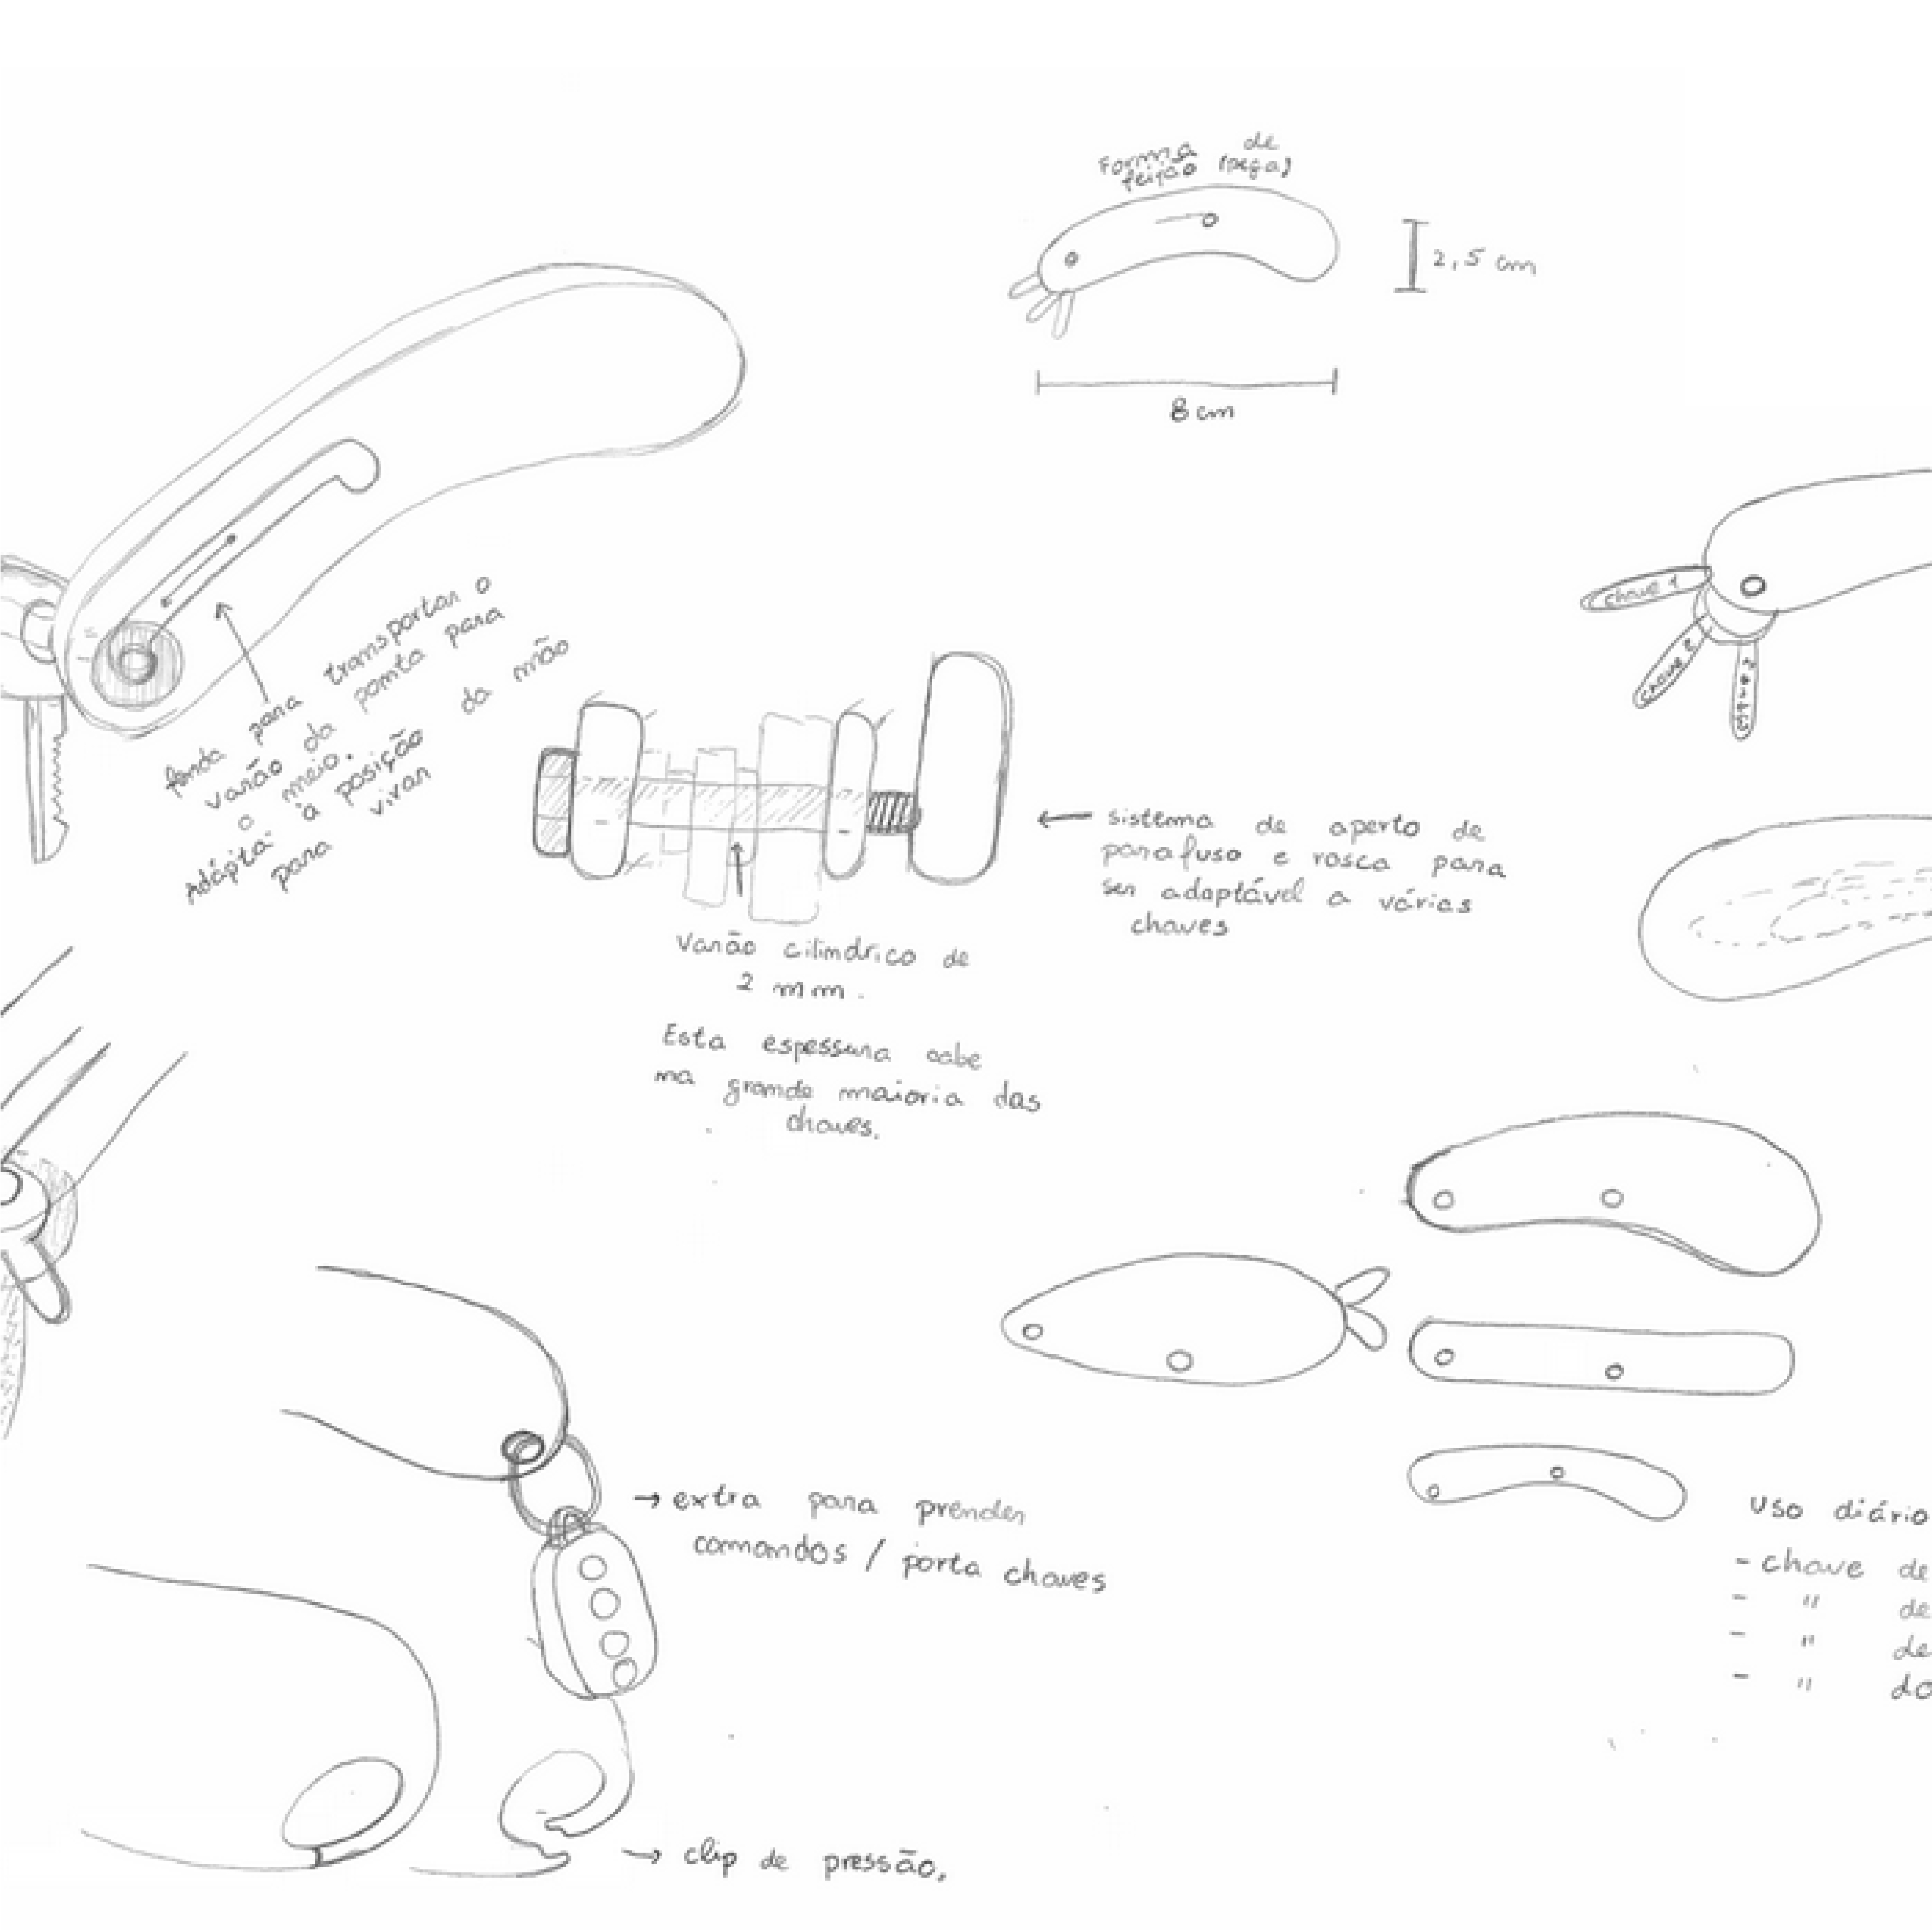 Forma de
feijão (pega)
2,5 cm
8 cm
chave 1
chave 2
fenda para transportar o
varão da ponta para
o meio.
Adapta à posição da mão
para viran
sistema de aperto de
parafuso e rosca para
ser adaptável a várias
chaves
Varão cilíndrico de
2 mm.
Esta espessura cabe
na grande maioria das
chaves.
→ extra para prender
comandos / porta chaves
Uso diário
- chave de
- " de
- " de
- " do
→ clip de pressão.